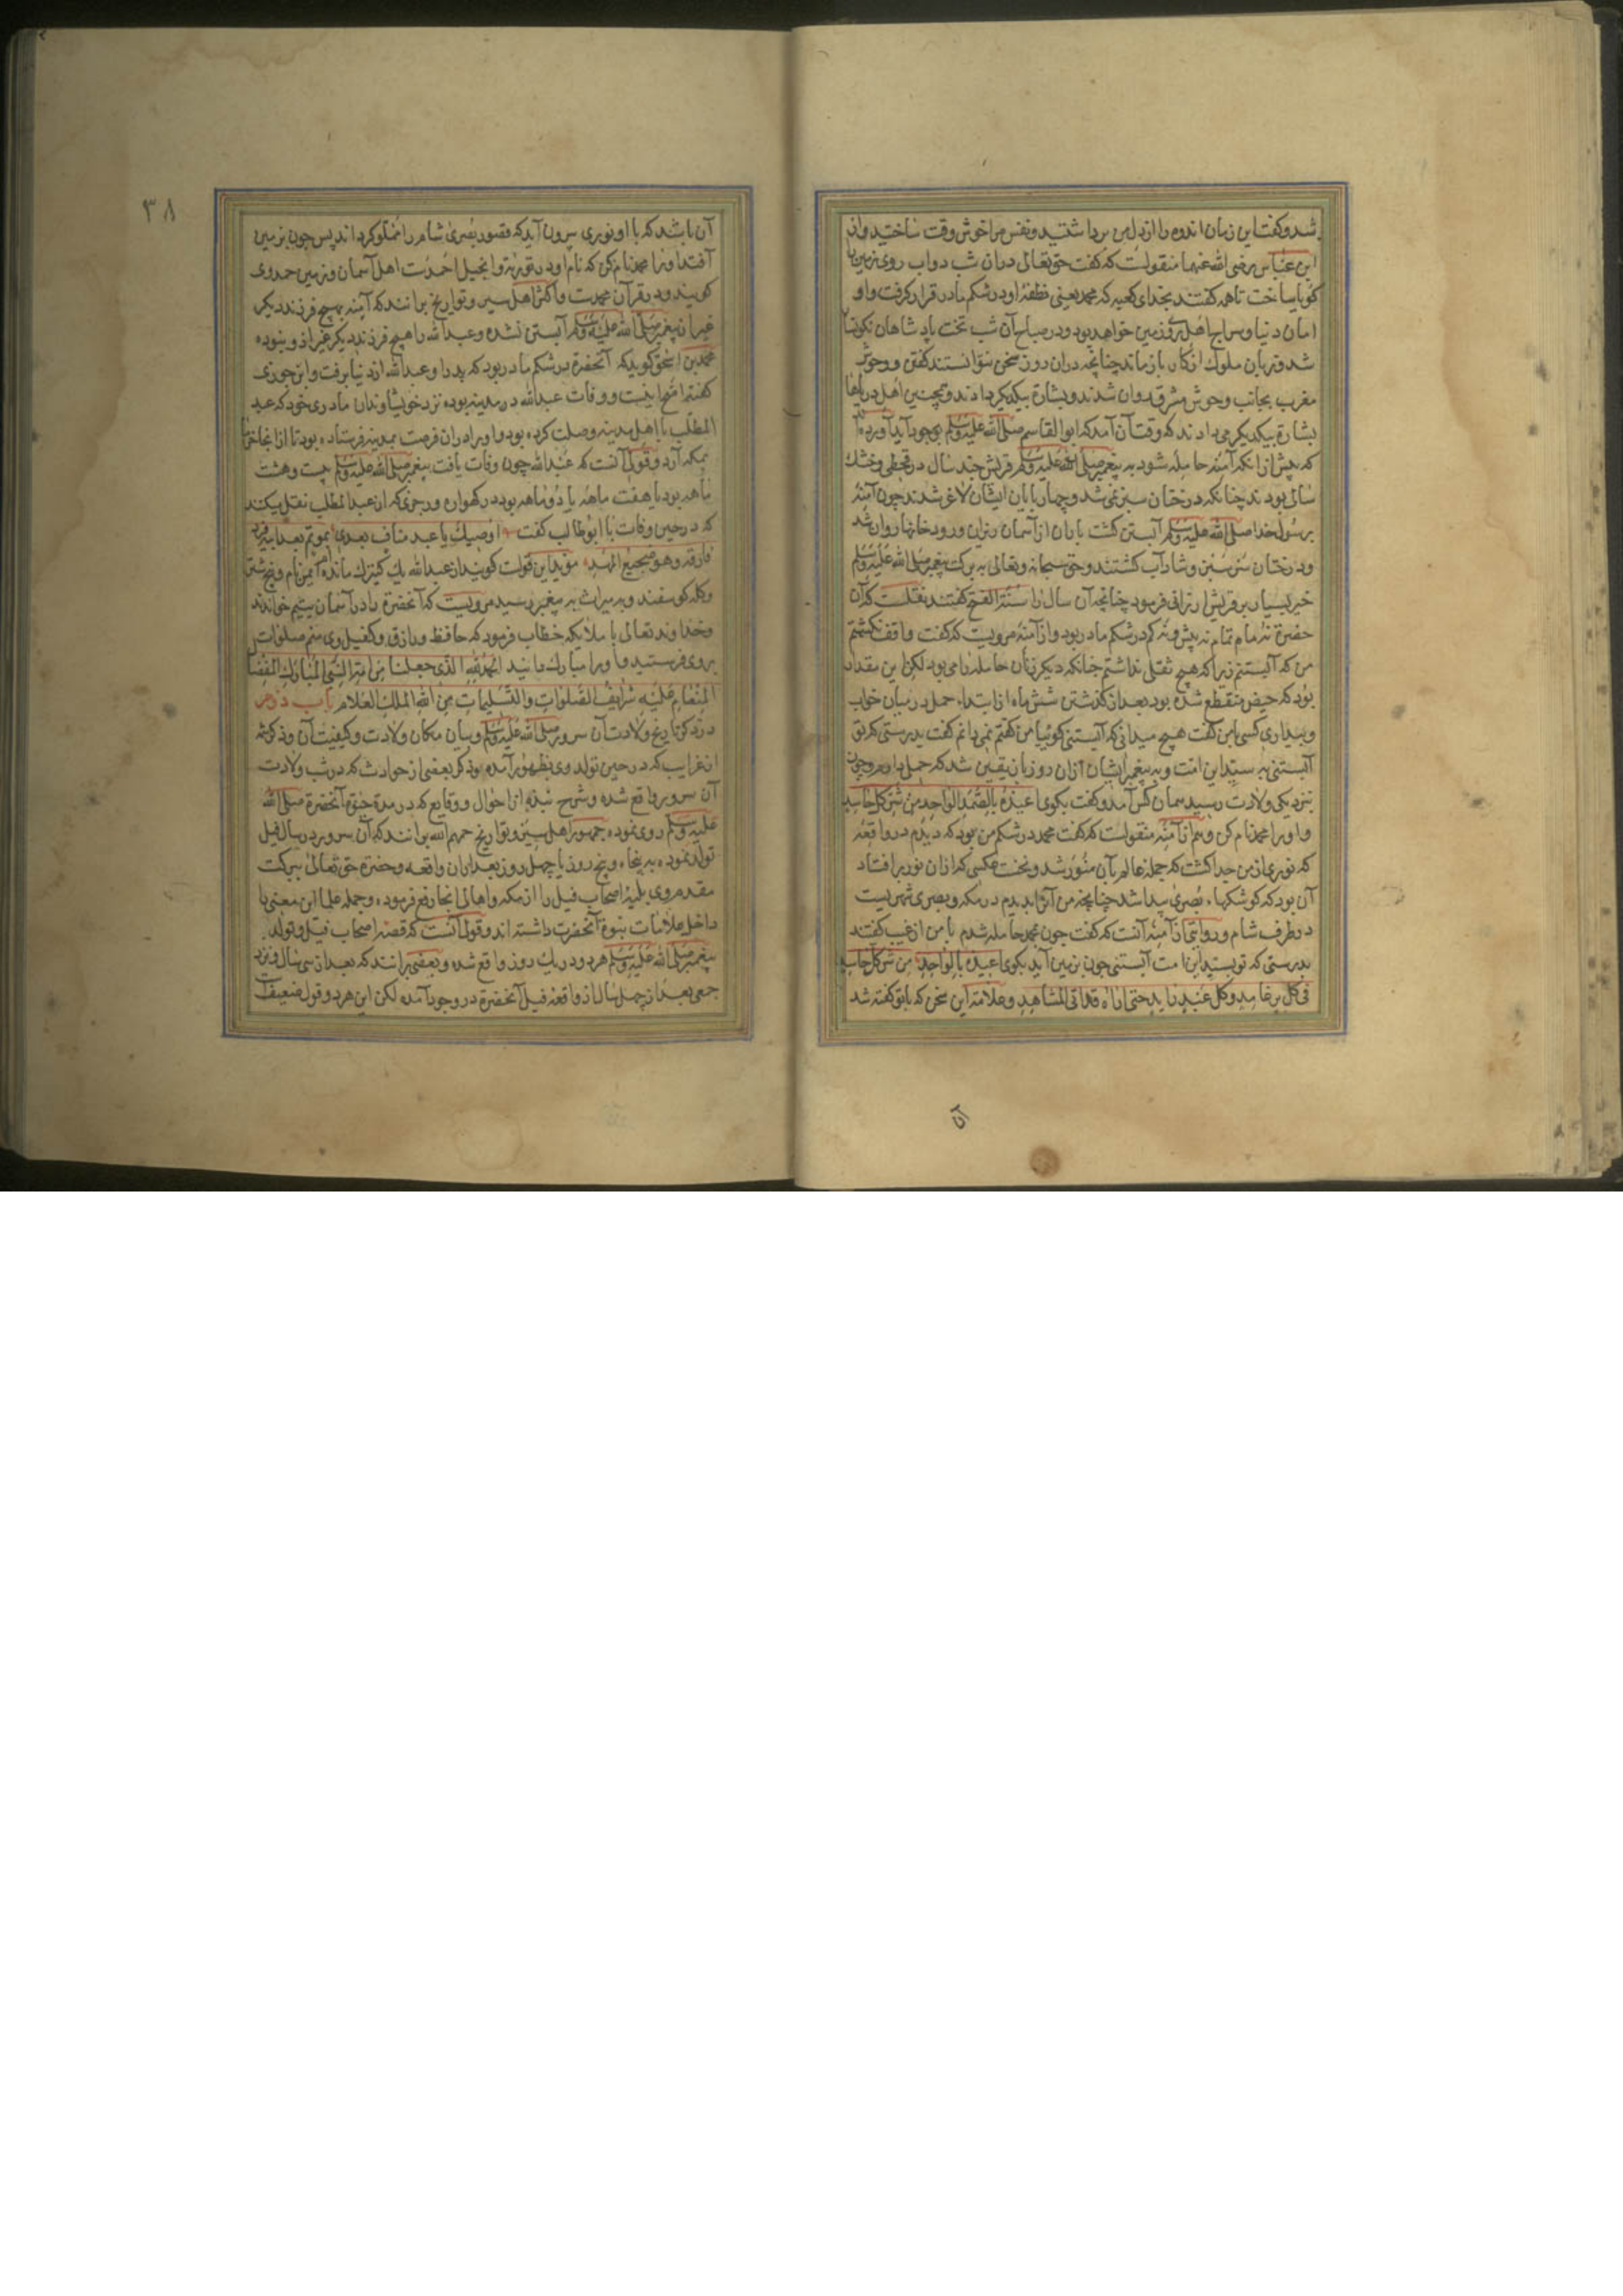 شد و کفت این زمان اندوه را از دل من برداشتید و نفس مرا خوش وقت ساختید و از
ابن عباس رضی الله عنهما منقولست که کفت حق تعالی دران شب دواب روی زمین را
کویا ساخت تا همه کفتند بخدای کعبه که محمد یعنی نطفهٔ او در شکم مادر قرار کرفت و او
امان دنیا و سراج اهل زمین خواهد بود و در صباح آن شب تخت پادشاهان نکونسار
شد و زبان ملوک از کار باز ماند چنانچه دران روز سخن نتوانستند کفتن و وحوش
مغرب بجانب وحوش مشرق روان شدند و بشارة بیکدیکر دادند و همچنین اهل دریاها
بشارة بیکدیکر می دادند که وقت آن آمد که ابو القاسم صلی الله علیه وسلم بوجود آید آورده اند
که پیش از انکه آمنه حامله شود به پیغمبر صلی الله علیه وسلم قریش چند سال در قحطی و خشک
سالی بودند چنانکه درختان سبز نمی شد و چهارپایان ایشان لاغر شدند چون آمنه
برسول خدا صلی الله علیه وسلم آبستن کشت باران از آسمان ریزان و رودخانها روان شد
و درختان سبز و شاداب کشتند و حق سبحانه وتعالی به برکت پیغمبر صلی الله علیه وسلم
خیر بسیار بر قریش ارزانی فرمود چنانچه آن سال را سنة الفتح کفتند نقلست که آن
حضرة نه ماه تمام نه بیش و نه کم در شکم مادر بود و از آمنه مرویست که کفت واقف نکشتم
من که آبستنم زیرا که هیچ ثقلی نداشتم چنانکه دیکر زنان حامله را می بود لکن این مقدار
بود که حیض منقطع شده بود بعد از کذشتن شش ماه از ابتداء حمل در میان خواب
و بیداری کسی با من کفت هیچ میدانی که آبستنی کوئیا من کفتم نمی دانم کفت بدرستی که تو
آبستنی به سید این امت و به پیغمبر ایشان ازان روز باز یقین شد که حمل دارم و چون
نزدیکی ولادت رسید همان کس آمد و کفت بکوی اعیذه بالصمد الواحد من شر کل حاسد
و او را محمد نام کن و هم از آمنه منقولست که کفت محمد در شکم من بود که دیدم در واقعه
که نوری از من جدا کشت که جمله عالم بآن منور شد و نخست عکسی که ازان نور بر افتاد
آن بود که کوشکهاء بصری پیدا شد چنانچه من آنرا بدیدم در مکه و بصری شهریست
در طرف شام و روایتی از آمنه آنست که کفت چون بمحمد حامله شدم با من از غیب کفتند
بدرستی که تو بسید این امت آبستنی چون بزمین آید بکوی اعیذه بالواحد من شر کل حاسد
فی کل بر عامد وکل عبد راید حتی اراه قد اتی المشاهد و علامة این سخن که با تو کفته شد
آن
٣٨
آن باشد که با او نوری بیرون آید که قصور بصری شام را مملو کرداند پس چون بزمین
آفتد او را محمد نام کن که نام او در توریة و انجیل احمدست اهل آسمان و زمین حمد وی
کویند و در قرآن محمدست و اکثر اهل سیر و تواریخ برانند که آمنه بهیچ فرزند دیکر
غیر از پیغمبر صلی الله علیه وسلم آبستن نشده و عبد الله را هیچ فرزند دیکر غیر ازو نبوده
محمد بن اسحق کوید که آنحضرة در شکم مادر بود که پدر او عبد الله از دنیا برفت و ابن جوزی
کفته اصح اینست و وفات عبد الله در مدینه بوده نزد خویشاوندان مادری خود که عبد
المطلب با اهل مدینه وصلت کرده بود و او را دران فرصت بمدینه فرستاده بود تا از انجا خرما
بمکه آرد و قولی آنست که عبد الله چون وفات یافت پیغمبر صلی الله علیه وسلم بیست و هشت
ماهه بود یا هفت ماهه یا دو ماهه بود در کهواره و رجزی که از عبد المطلب نقل میکنند
که در حین وفات با ابو طالب کفت اوصیک یا عبد مناف بعدی بموتم بعد ابیه فرد
فارقه وهو ضجیع المهد مؤید این قولست کویند از عبد الله یک کنیزک مانده ام ایمن نام و پنج شتر
و کله کوسفند و به میراث به پیغمبر رسید مرویست که آنحضرة را در آسمان یتیم خواندند
و خداوند تعالی با ملائکه خطاب فرمود که حافظ و رازق و کفیل وی منم صلوات
بروی فرستید و او را مبارک دانید الحمد لله الذی جعلنا من امة النبی المبارک المفضال
المنعام علیه شرایف الصلوات والتسلیمات من الله الملک العلام باب دوم
در ذکر تاریخ ولادت آن سرور صلی الله علیه وسلم و بیان مکان ولادت و کیفیت آن و ذکر شمه
از غرایب که در حین تولد وی بظهور آمده و ذکر بعضی از حوادث که در شب ولادت
آن سرور واقع شده و شرح نبذی از احوال و وقایع که در مدة حیوة آنحضرة صلی الله
علیه وسلم روی نموده جمهور اهل سیر و تواریخ رحمهم الله برانند که آن سرور در سال فیل
تولد نموده به پنجاه و پنج روز یا چهل روز بعد ازان واقعه و حضرة حق تعالی ببرکت
مقدم وی بلیهٔ اصحاب فیل را از مکه و اهالی انجا رفع فرموده و جمله علما این معنی را
داخل علامات نبوة آنحضرت داشته اند و قولی آنست که قصهٔ اصحاب فیل و تولد
پیغمبر صلی الله علیه وسلم هر دو در یک روز واقع شده و بعضی برانند که بعد از سی سال و نزد
جمعی بعد از چهل سال از واقعهٔ فیل آنحضرة در وجود آمده لکن این هر دو قول ضعیف